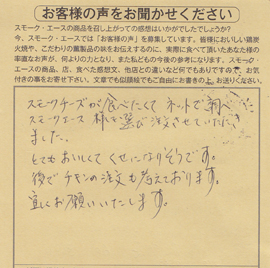 お客様の声をお聞かせください
スモーク・エースの商品を召し上がっての感想はいかがでしたでしょうか?
今、スモーク・エースでは「お客様の声」を募集しています。皆様においしい鶏炭
火焼や、こだわりの薫製品の味をお伝えするのに、実際に食べて頂いたあなた様の
率直なお声が、何よりの力となり、また私どもの今後の参考になります。スモーク・
エースの商品、店、食べた感想文、他店との違いなど何でもありですので、お気
付きの事をお寄せ下さい。文章でも似顔絵でもご自由にお書きの上、お送りください。
スモークチーズが食べたくて ネットで調べた
スモークエース 様を選び注文させていただき
ました。
とてもおいしくて くせになりそうです。
後でチキンの注文も考えております。
宜しくお願いいたします。